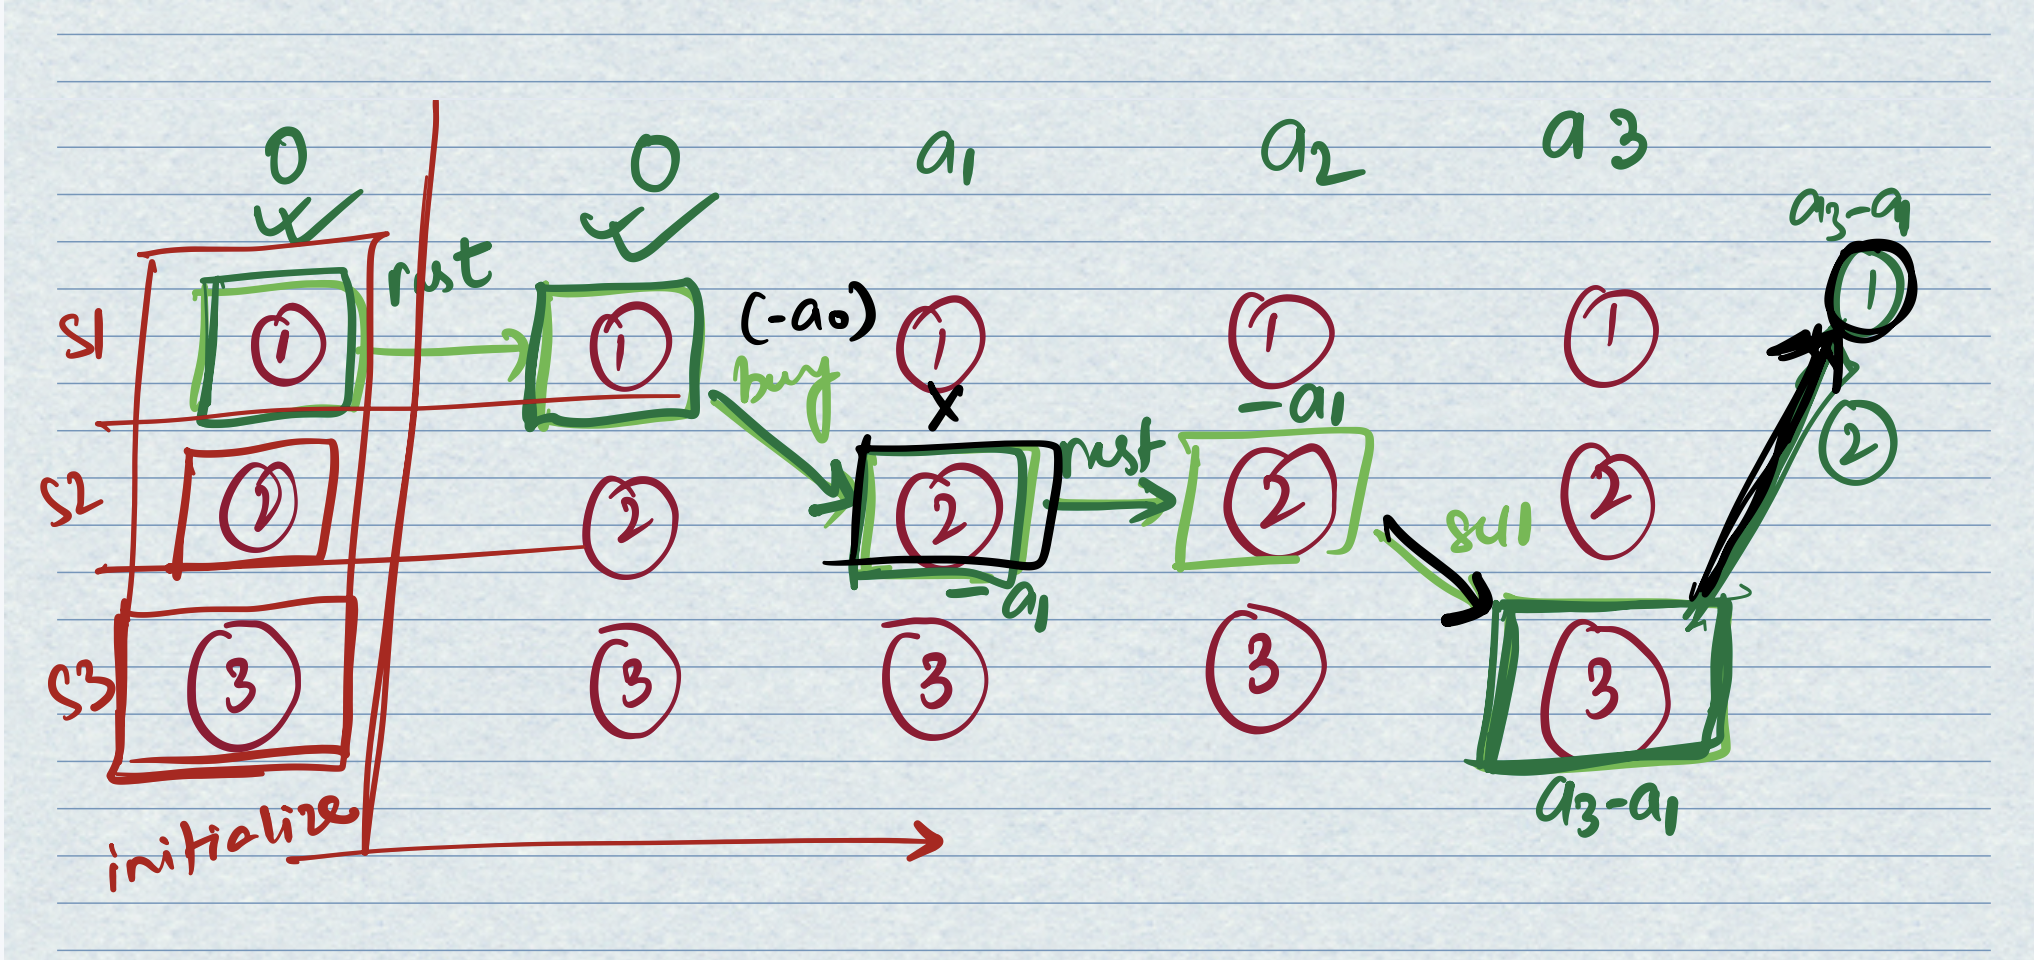 0 0 a1 a2 a3
a3-a1
rest
S1 1 1 (-a0) 1 1 1 1
buy
x
-a1
S2 2 2 2 rest 2 sell 2 2
-a1
S3 3 3 3 3 3
a3-a1
initialize